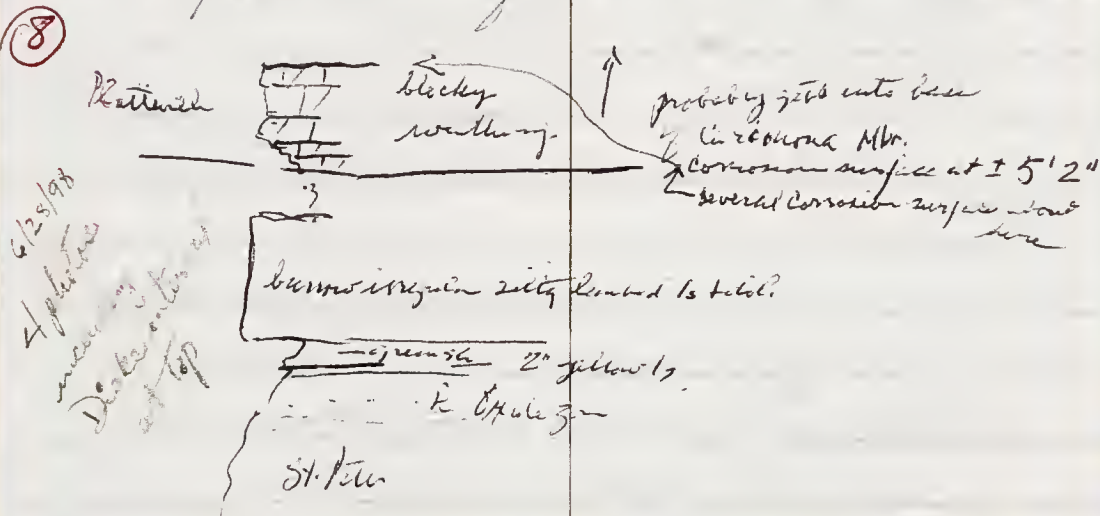 8
Platteville
blocky
weathering
probably gets into base
Carimona Mbr.
Corrosion surface at ± 5' 2"
several corrosion surfaces
here
.3
6/28/98
4 photos
at top
burrow irregular silty ls
greenish 2" yellow ls.
St. Peter